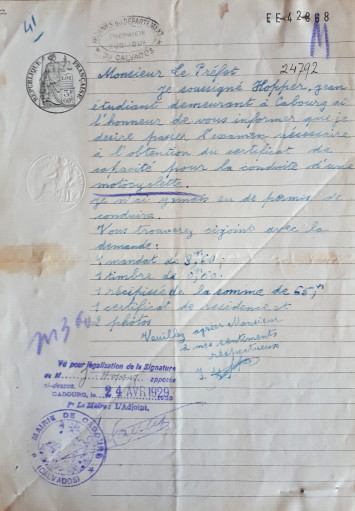 41
ARCHIVES DU DÉPARTEMENT
DU CALVADOS
EE-42868
M
RÉPUBLIQUE FRANÇAISE
Monsieur Le Préfet
24792
Je soussigné Hopper, Jean
étudiant demeurant à Cabourg ai
l'honneur de vous informer que je
désire passer l'examen nécessaire
à l'obtention du certificat de
capacité pour la conduite d'une
motocyclette.
Je n'ai jamais eu de permis de
conduire.
Vous trouverez ci-joins avec la
demande:
1 mandat de
1 timbre de
1 récépissé de la somme de
1 certificat de résidence et
photos
Veuillez agréer Monsieur
à mes sentiments
respectueux
Vu pour légalisation de la Signature
de M. apposée
ci-dessus.
CABOURG, le 24 AVR 1929
Pr Le Maire: L'Adjoint,
MAIRIE DE CABOURG
(CALVADOS)